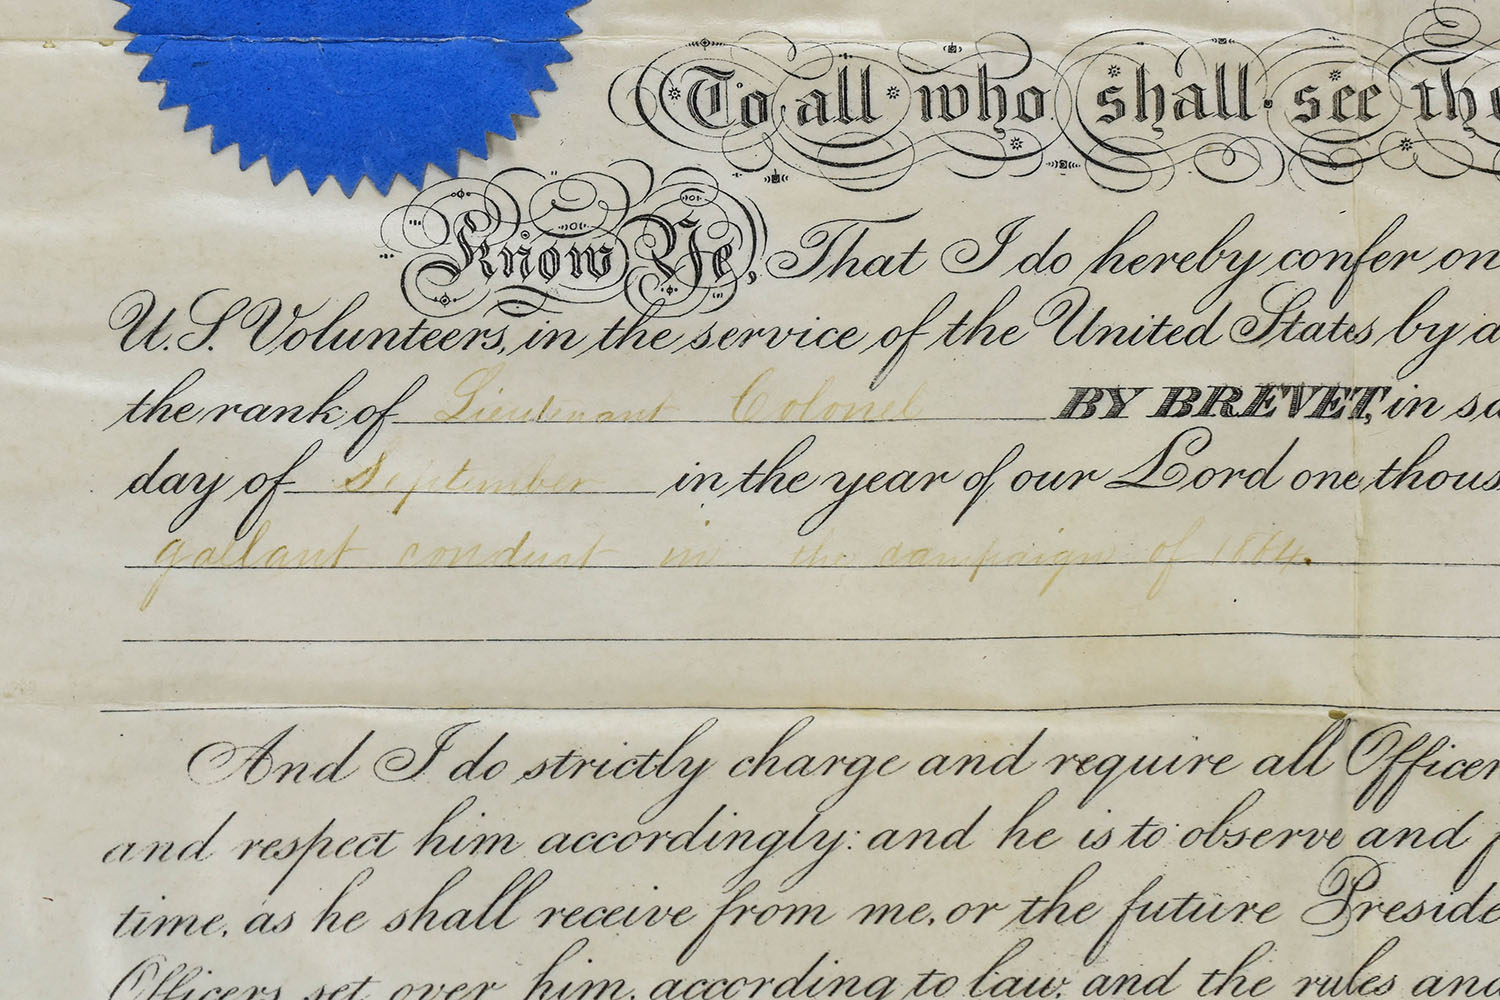 To all who shall see the
Know Ye, That I do hereby confer on
U.S. Volunteers, in the service of the United States by a
the rank of Lieutenant Colonel BY BREVET, in sa
day of September in the year of our Lord one thous
gallant conduct in the campaign of 1864.
And I do strictly charge and require all Officer
and respect him accordingly: and he is to observe and f
time, as he shall receive from me, or the future Preside
Officers set over him, according to law, and the rules and